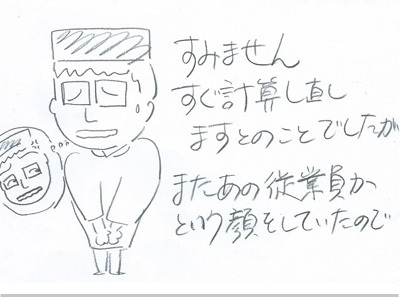 すみません
すぐ計算し直し
ますとのことでしたが
またあの従業員か
という顔をしていたので